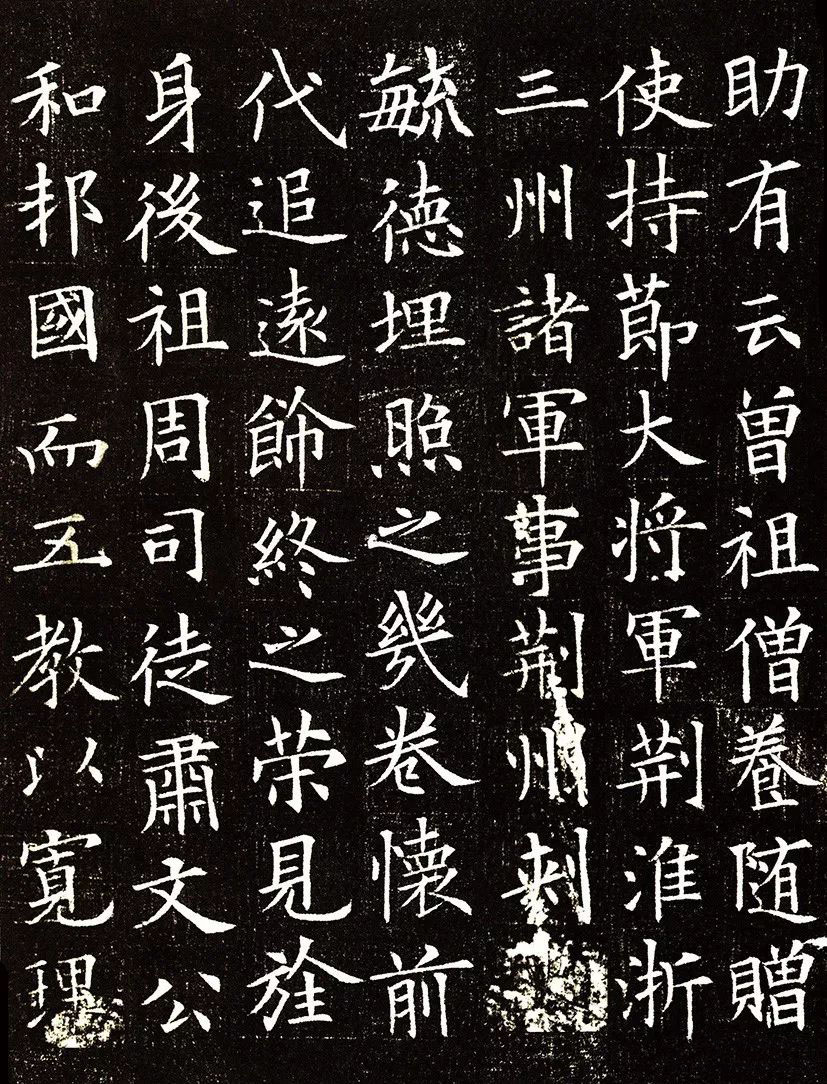 助有云曽祖僧養随贈
使持莭大将軍荆淮浙
三州諸軍事荆州刺
毓徳埋照之幾卷懐前
代追遠飾終之荣見旌
身後祖周司徒肅文公
和邦國而五教以寛理